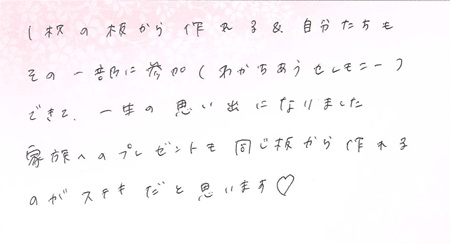 1枚の板から作れる&自分たちも
その一部に参加(わかちあうセレモニー)
できて、一生の思い出になりました
家族へのプレゼントも同じ板から作れる
のがステキだと思います♡